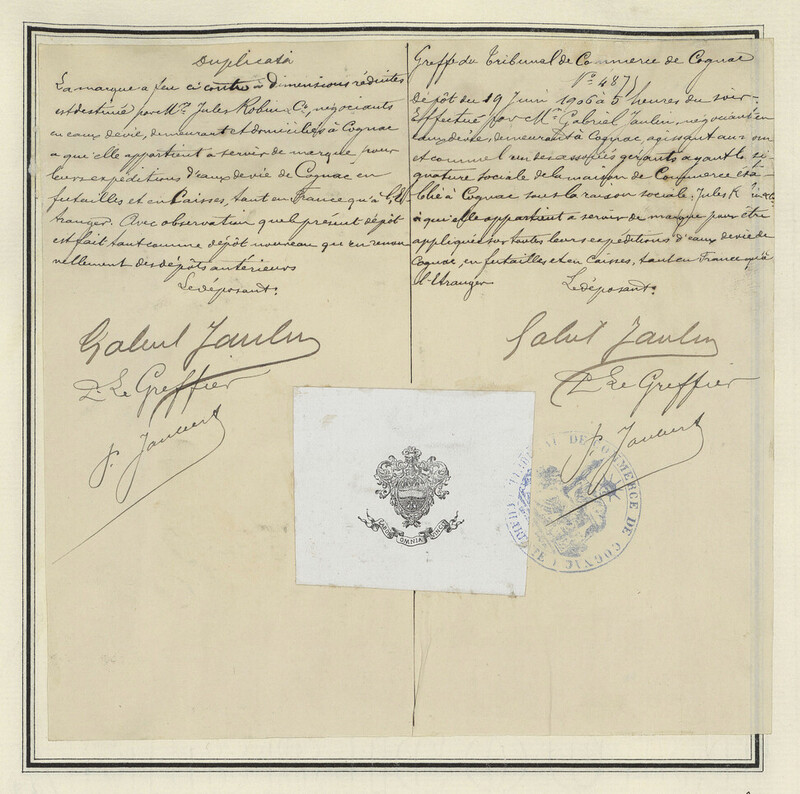 Duplicata
La marque à feu ci contre à dimensions réduites
est destinée par Mrs Jules Robin Cie, négociants
en eaux devie, demeurant et domiciliés à Cognac
à qu'elle appartient à servir de marque pour
leurs expéditions d'eaux de vie de Cognac en
futailles et en Caisses, tant en France qu'à l'E
tranger. Avec observation que le présent dépôt
est fait tant comme dépôt nouveau qu'en renou
vellement des dépôts antérieurs
Le déposant.
Gabriel Jaulin
Le Greffier
Greffe du Tribunal de Commerce de Cognac
No 4875
Dépôt du 19 Juin 1906 à 5 heures du soir.
Effectué par Mr Gabriel Jaulin, négociant en
eaux devie, demeurant à Cognac, agissant au nom
et comme l'un des associés gérants ayant la si
gnature sociale de la maison de Commerce éta
blie à Cognac sous la raison sociale, Jules R
à qui elle appartient à servir de marque pour être
appliquée sur toutes leurs expéditions d'eaux devie de
Cognac, en futailles et en Caisses, tant en France qu'à
l'Etranger
Le déposant.
Gabriel Jaulin
Le Greffier
OMNIA
TRIBUNAL DE COMMERCE DE COGNAC